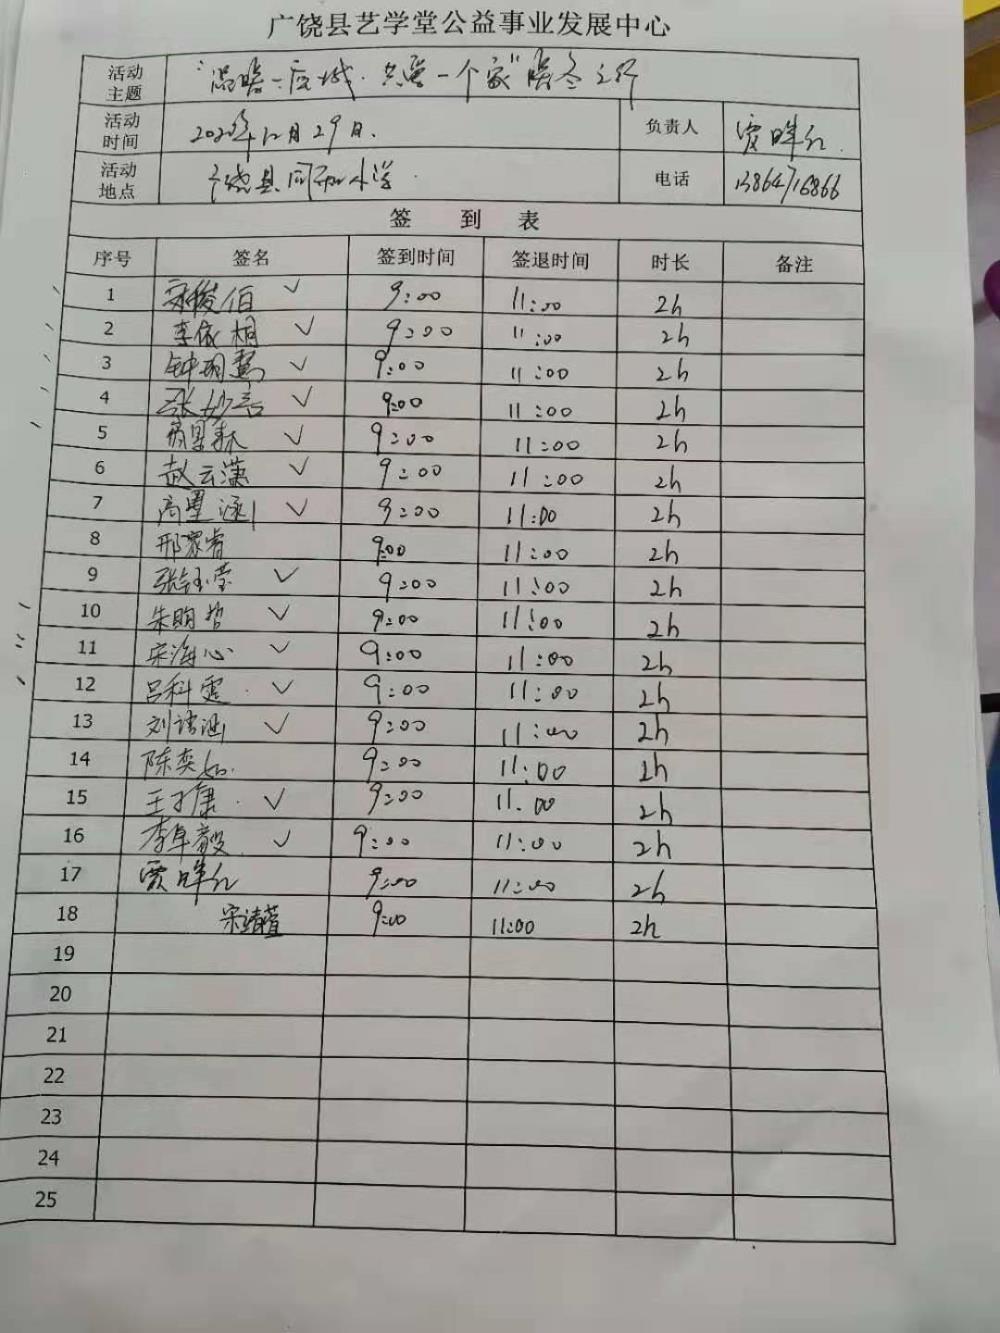 广饶县艺学堂公益事业发展中心
活动主题 "温暖一座城·共享一个家"暖冬之行
活动时间 2020年12月29日. 负责人 贾晔红
活动地点 广饶县同和小学 电话 13864716866
签 到 表
序号 签名 签到时间 签退时间 时长 备注
1 宋俊佰 ✓ 9:00 11:00 2h
2 李依桐 ✓ 9:00 11:00 2h
3 钟玥霭 ✓ 9:00 11:00 2h
4 张妙言 ✓ 9:00 11:00 2h
5 ✓ 9:00 11:00 2h
6 赵云潇 ✓ 9:00 11:00 2h
7 高墨涵 ✓ 9:00 11:00 2h
8 邢家睿 9:00 11:00 2h
9 张钰莹 ✓ 9:00 11:00 2h
10 朱明哲 ✓ 9:00 11:00 2h
11 宋海心 ✓ 9:00 11:00 2h
12 吕科霆 ✓ 9:00 11:00 2h
13 刘诗涵 ✓ 9:00 11:00 2h
14 陈奕如. 9:00 11:00 2h
15 王子康 ✓ 9:00 11.00 2h
16 李卓毅 ✓ 9:00 11:00 2h
17 贾晔红 9:00 11:00 2h
18 宋靖萱 9:00 11:00 2h
19
20
21
22
23
24
25